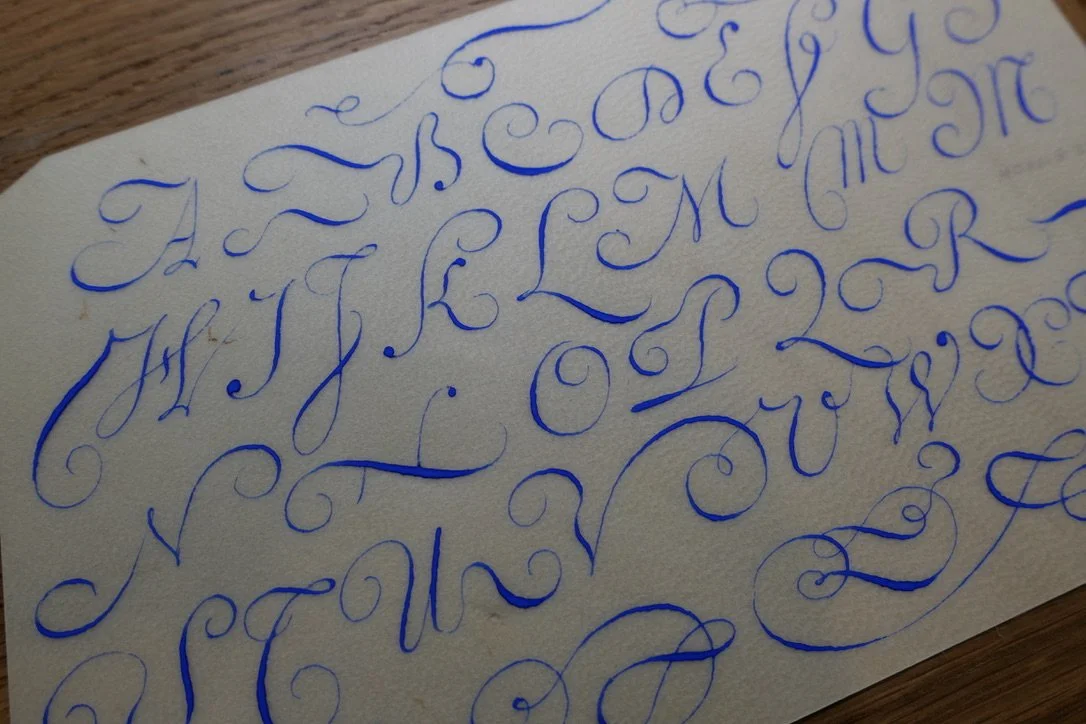 A B C D E F G
H I J K L M M N
N O P Q R
S T U V U W X
Z